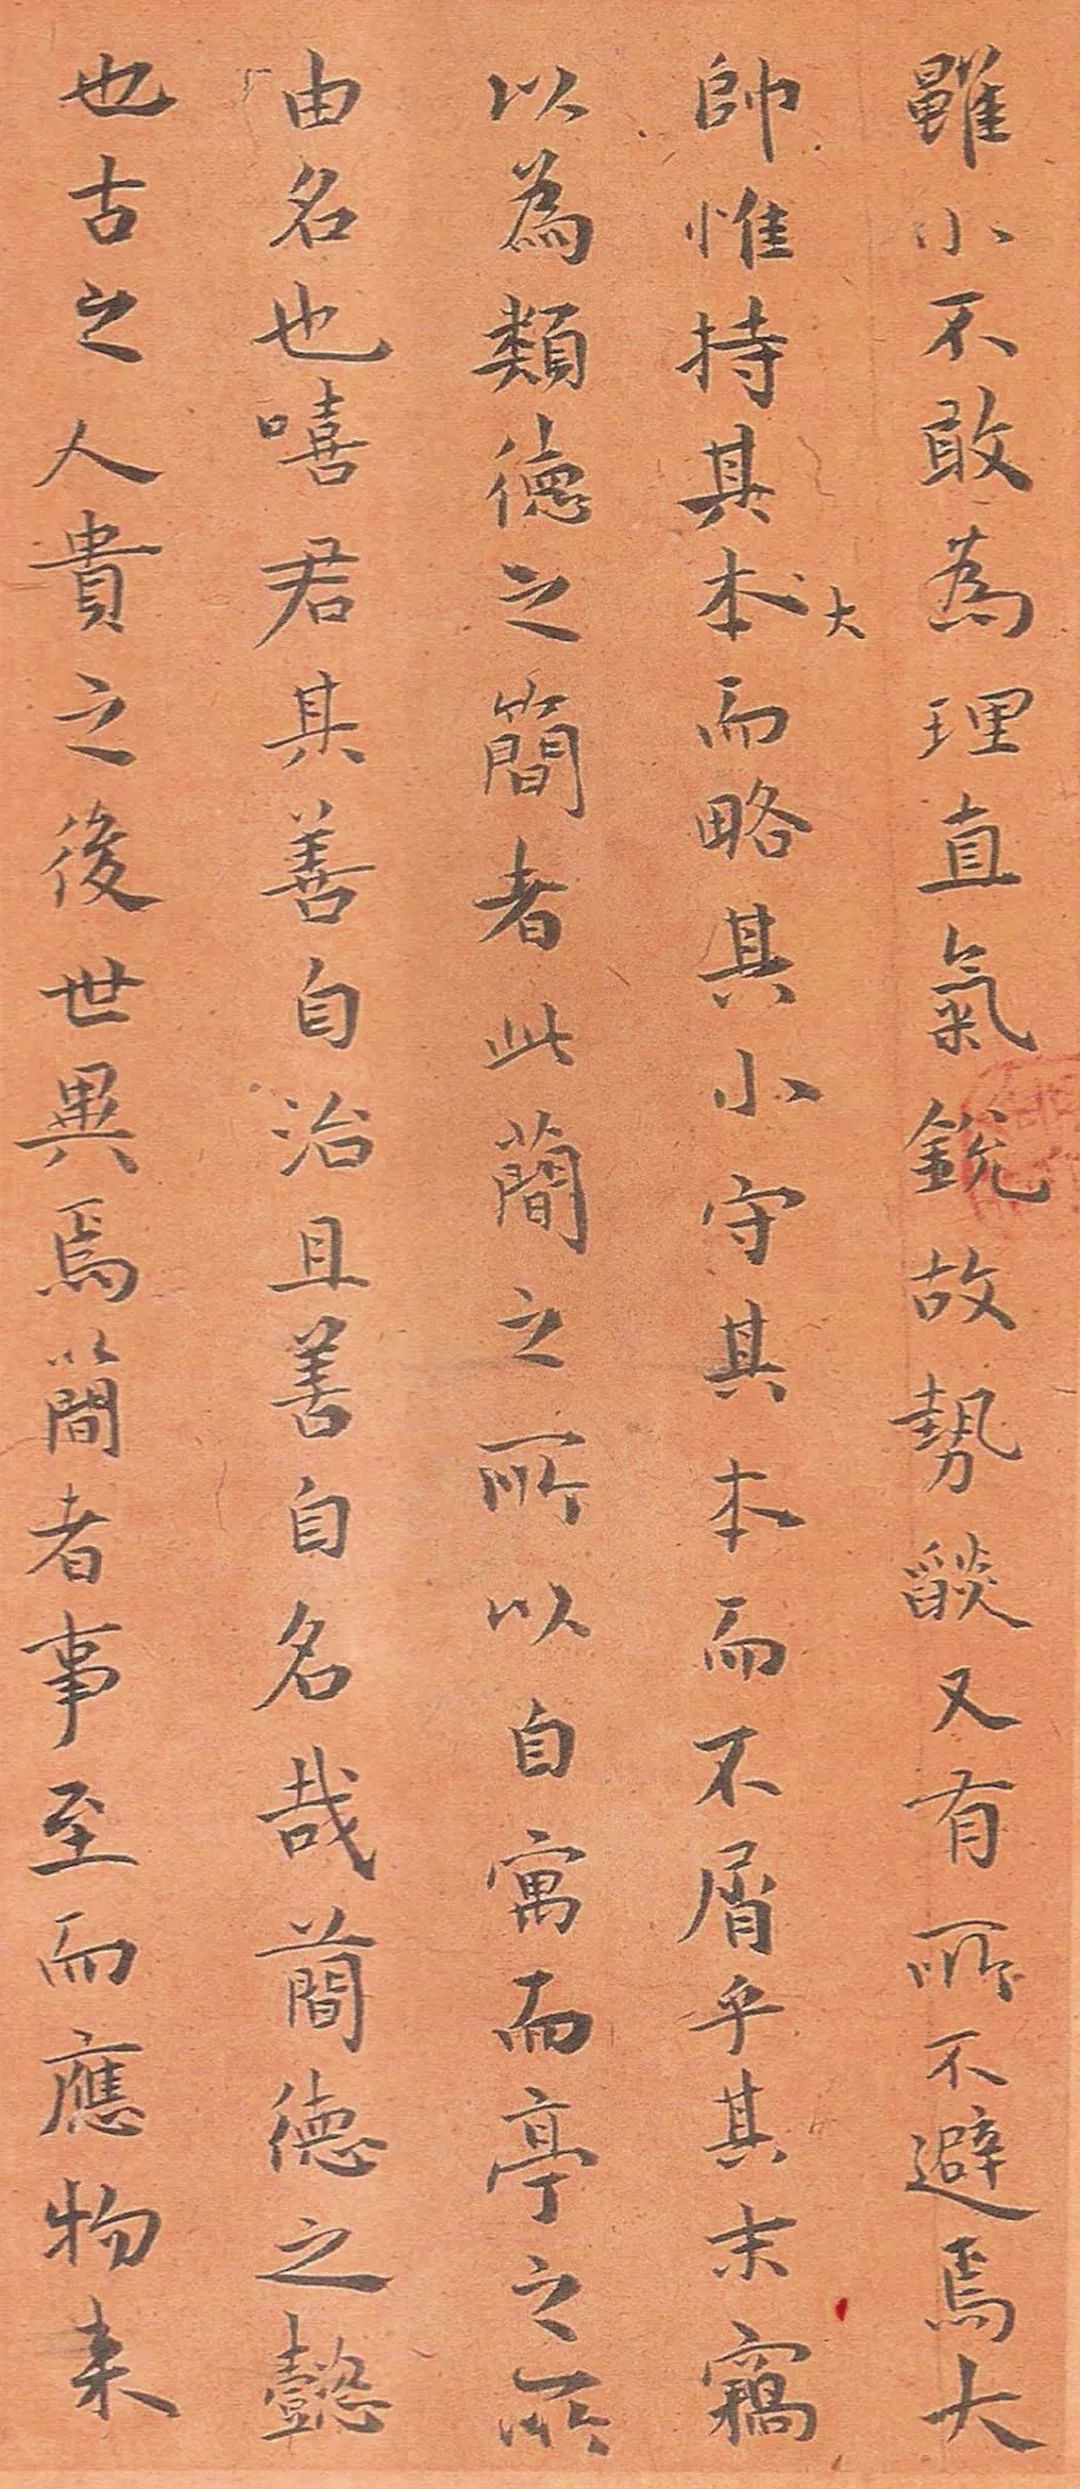 雖小不敢為理直氣銳故勢燄又有所不避焉大
帥惟持其本而略其小守其本而不屑乎其末竊
大
以為類德之簡者此蕳之所以自寓而亭之所
由名也嘻君其善自治且善自名哉蕳德之懿
也古之人貴之後世異焉簡者事至而應物来